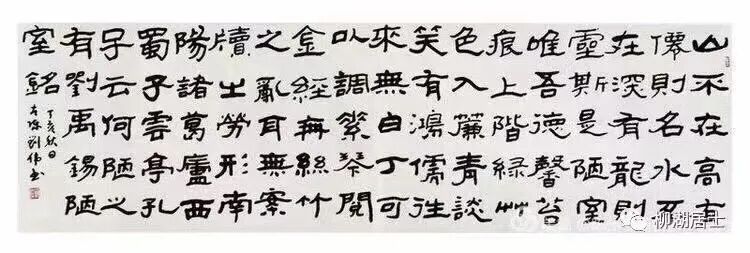 山不在高有
僊則名水不
在深有龍則
靈斯是陋室
唯吾德馨苔
痕上階綠艸
色入簾青談
笑有鴻儒往
來無白丁可
以調素琴閱
金經無絲竹
之亂耳無案
牘之勞形南
陽諸葛廬西
蜀子雲亭孔
子云何陋之
有劉禹錫陋
室銘
丁亥秋日
古陳劉偉书
柳湖居士